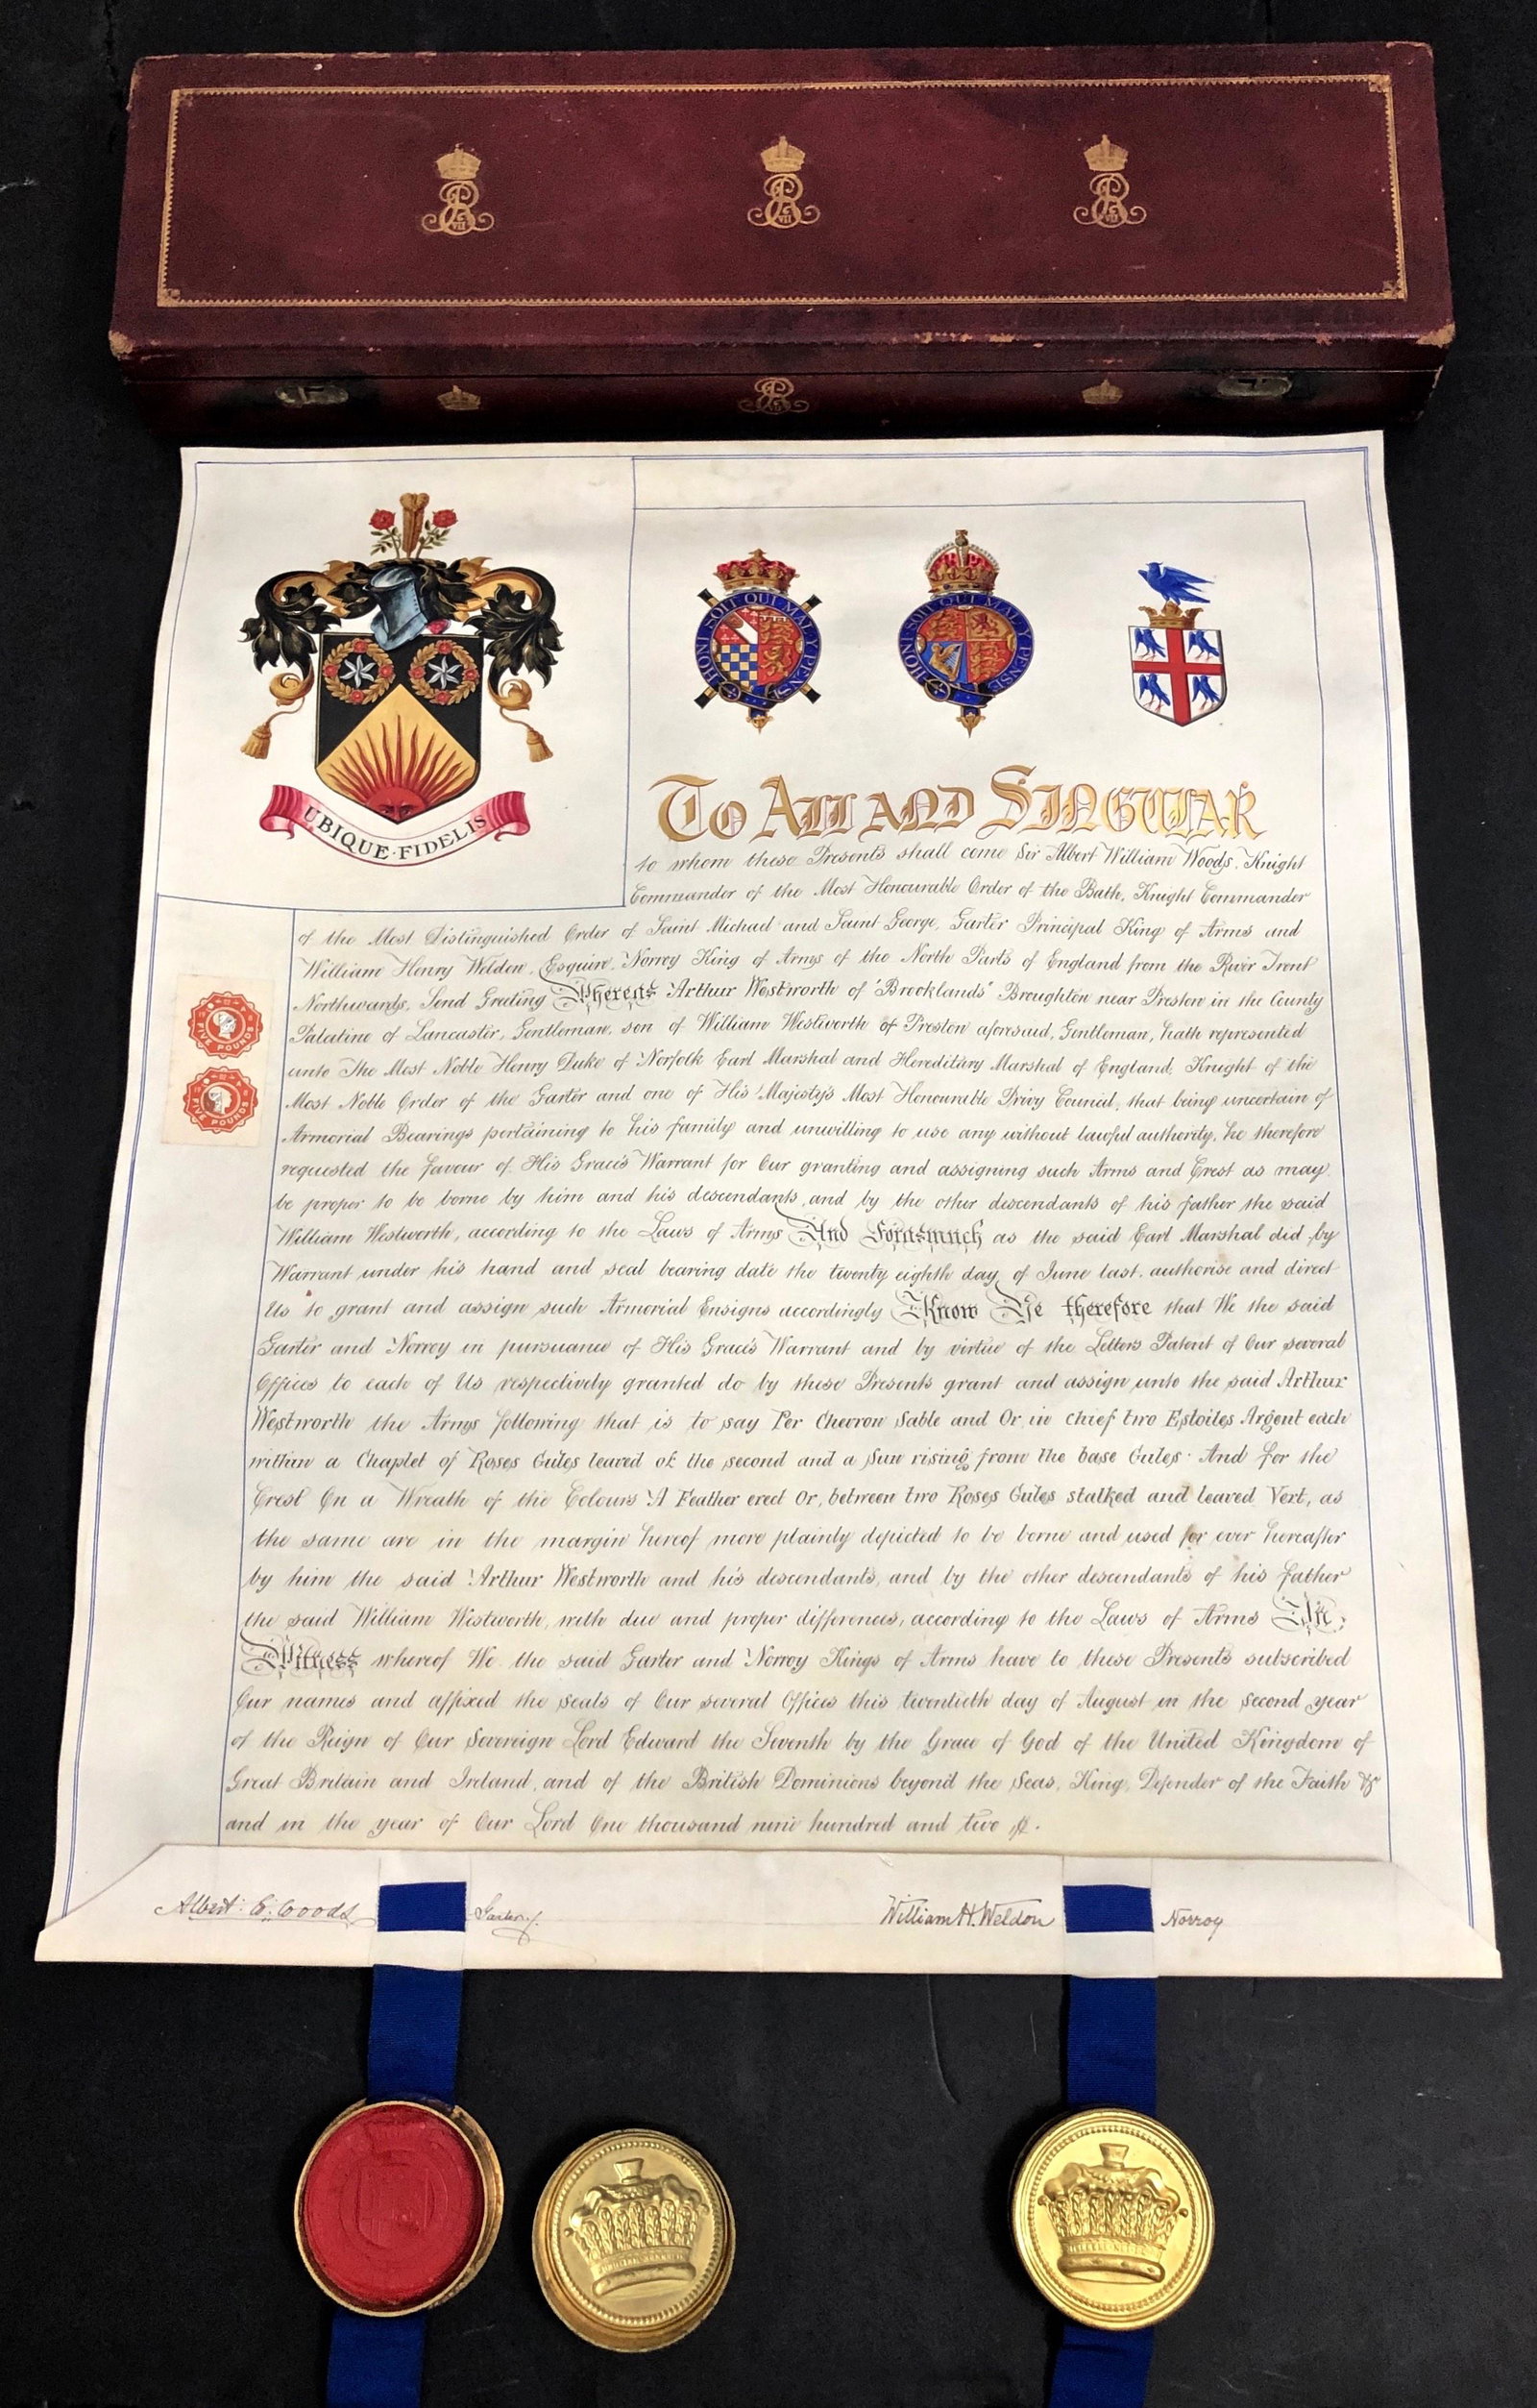 HONI SOIT QUI MAL Y PENSE
HONI SOIT QUI MAL Y PENSE
UBIQUE·FIDELIS
To All and Singular
to whom these Presents shall come Sir Albert William Woods, Knight
Commander of the Most Honourable Order of the Bath, Knight Commander
of the Most Distinguished Order of Saint Michael and Saint George, Garter Principal King of Arms and
William Henry Weldon, Esquire, Norroy King of Arms of the North Parts of England from the River Trent
Northwards, Send Greeting Whereas Arthur Westworth of "Brooklands" Broughton near Preston in the County
Palatine of Lancaster, Gentleman, son of William Westworth of Preston aforesaid, Gentleman, hath represented
unto The Most Noble Henry Duke of Norfolk Earl Marshal and Hereditary Marshal of England, Knight of the
Most Noble Order of the Garter and one of His Majesty's Most Honourable Privy Council, that being uncertain of
Armorial Bearings pertaining to his family and unwilling to use any without lawful authority, he therefore
requested the favour of His Grace's Warrant for Our granting and assigning such Arms and Crest as may
be proper to be borne by him and his descendants, and by the other descendants of his father the said
William Westworth, according to the Laws of Arms And Forasmuch as the said Earl Marshal did by
Warrant under his hand and seal bearing date the twenty eighth day of June last, authorise and direct
Us to grant and assign such Armorial Ensigns accordingly Know Ye therefore that We the said
Garter and Norroy in pursuance of His Grace's Warrant and by virtue of the Letters Patent of Our several
Offices to each of Us respectively granted do by these Presents grant and assign unto the said Arthur
Westworth the Arms following that is to say Per Chevron Sable and Or, in chief two Estoiles Argent each
within a Chaplet of Roses Gules leaved of the second and a Sun rising from the base Gules· And for the
Crest On a Wreath of the Colours A Feather erect Or, between two Roses Gules stalked and leaved Vert, as
the same are in the margin hereof more plainly depicted to be borne and used for ever hereafter
by him the said Arthur Westworth and his descendants, and by the other descendants of his father
the said William Westworth, with due and proper differences, according to the Laws of Arms In
Witness whereof We the said Garter and Norroy Kings of Arms have to these Presents subscribed
Our names and affixed the seals of Our several Offices this twentieth day of August in the second year
of the Reign of Our Sovereign Lord Edward the Seventh by the Grace of God of the United Kingdom of
Great Britain and Ireland, and of the British Dominions beyond the Seas, King, Defender of the Faith &c
and in the year of Our Lord One thousand nine hundred and two
FIVE POUNDS
FIVE POUNDS
Albert W. Woods Garter
William H. Weldon Norroy